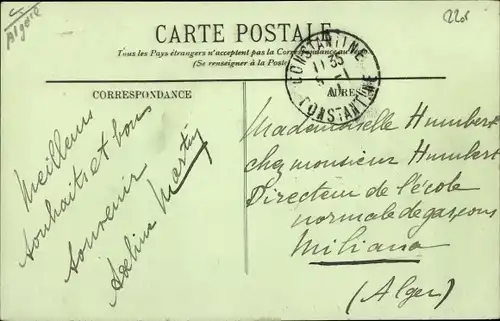 Algérie
2208
CARTE POSTALE
Tous les Pays étrangers n'acceptent pas la Correspondance au
(Se renseigner à la Poste)
CONSTANTINE
11 35
CONSTANTINE
CORRESPONDANCE
ADRES
Meilleurs
souhaits et bons
souvenir
Martin
Mademoiselle Humbert
chez monsieur Humbert
Directeur de l'école
normale de garçons
Miliana
(Alger)